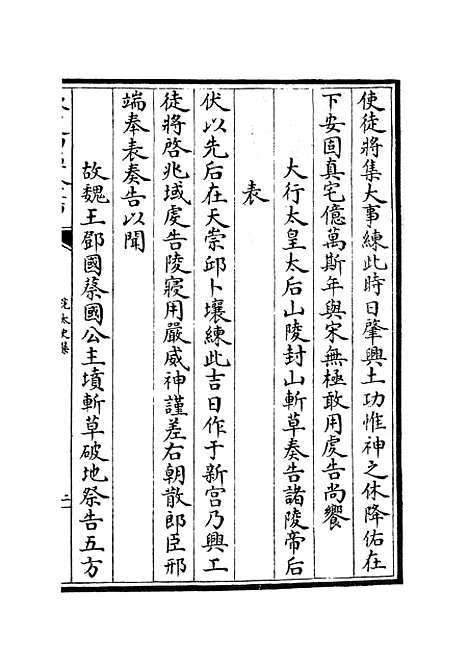 使徒將集大事練此時日肇興土功惟神之休降佑在
下安固真宅億萬斯年與宋無極敢用虔告尚饗
大行太皇太后山陵封山斬草奏告諸陵帝后
表
伏以先后在天崇邱卜壤練此吉日作于新宫乃興工
徒將啓兆域虔告陵寢用嚴威神謹差右朝散郎臣邢
端奉表奏告以聞
故魏王鄧國蔡國公主墳斬草破地祭告五方
太史集
二